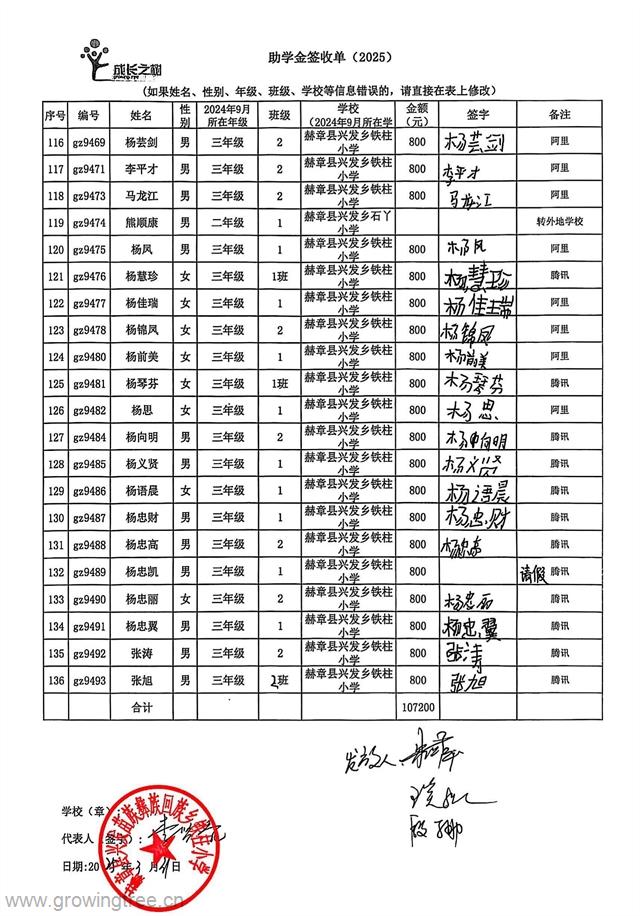 成长之树
助学金签收单（2025）
（如果姓名、性别、年级、班级、学校等信息错误的，请直接在表上修改）
序号 编号 姓名 性别 2024年9月所在年级 班级 学校（2024年9月所在学 金额（元） 签字 备注
116 gz9469 杨芸剑 男 三年级 2 赫章县兴发乡铁柱小学 800 杨芸剑 阿里
117 gz9471 李平才 男 三年级 2 赫章县兴发乡铁柱小学 800 李平才 阿里
118 gz9473 马龙江 男 三年级 2 赫章县兴发乡铁柱小学 800 马龙江 阿里
119 gz9474 熊顺康 男 二年级 1 赫章县兴发乡石丫小学 转外地学校
120 gz9475 杨凤 男 三年级 1 赫章县兴发乡铁柱小学 800 杨凤 阿里
121 gz9476 杨慧珍 女 三年级 1班 赫章县兴发乡铁柱小学 800 杨慧珍 腾讯
122 gz9477 杨佳瑞 女 三年级 1 赫章县兴发乡铁柱小学 800 杨佳瑞 阿里
123 gz9478 杨锦凤 女 三年级 2 赫章县兴发乡铁柱小学 800 杨锦凤 阿里
124 gz9480 杨前美 女 三年级 1 赫章县兴发乡铁柱小学 800 杨前美 阿里
125 gz9481 杨琴芬 女 三年级 1班 赫章县兴发乡铁柱小学 800 杨琴芬 腾讯
126 gz9482 杨思 女 三年级 1 赫章县兴发乡铁柱小学 800 杨思 阿里
127 gz9484 杨向明 男 三年级 2 赫章县兴发乡铁柱小学 800 杨向明 腾讯
128 gz9485 杨义贤 男 三年级 1 赫章县兴发乡铁柱小学 800 杨义贤 腾讯
129 gz9486 杨语晨 女 三年级 1 赫章县兴发乡铁柱小学 800 杨语晨 腾讯
130 gz9487 杨忠财 男 三年级 1 赫章县兴发乡铁柱小学 800 杨忠财 腾讯
131 gz9488 杨忠高 男 三年级 2 赫章县兴发乡铁柱小学 800 杨忠高 腾讯
132 gz9489 杨忠凯 男 三年级 1 赫章县兴发乡铁柱小学 800 请假 腾讯
133 gz9490 杨忠丽 女 三年级 2 赫章县兴发乡铁柱小学 800 杨忠丽 腾讯
134 gz9491 杨忠翼 男 三年级 1 赫章县兴发乡铁柱小学 800 杨忠翼 腾讯
135 gz9492 张涛 男 三年级 2 赫章县兴发乡铁柱小学 800 张涛 腾讯
136 gz9493 张旭 男 三年级 2班 赫章县兴发乡铁柱小学 800 张旭 腾讯
合计 107200
发放人：
学校（章）：
代表人（签字）：
日期：20 年 月 日
赫章县兴发苗族彝族回族乡铁柱小学
www.growingtree.cn